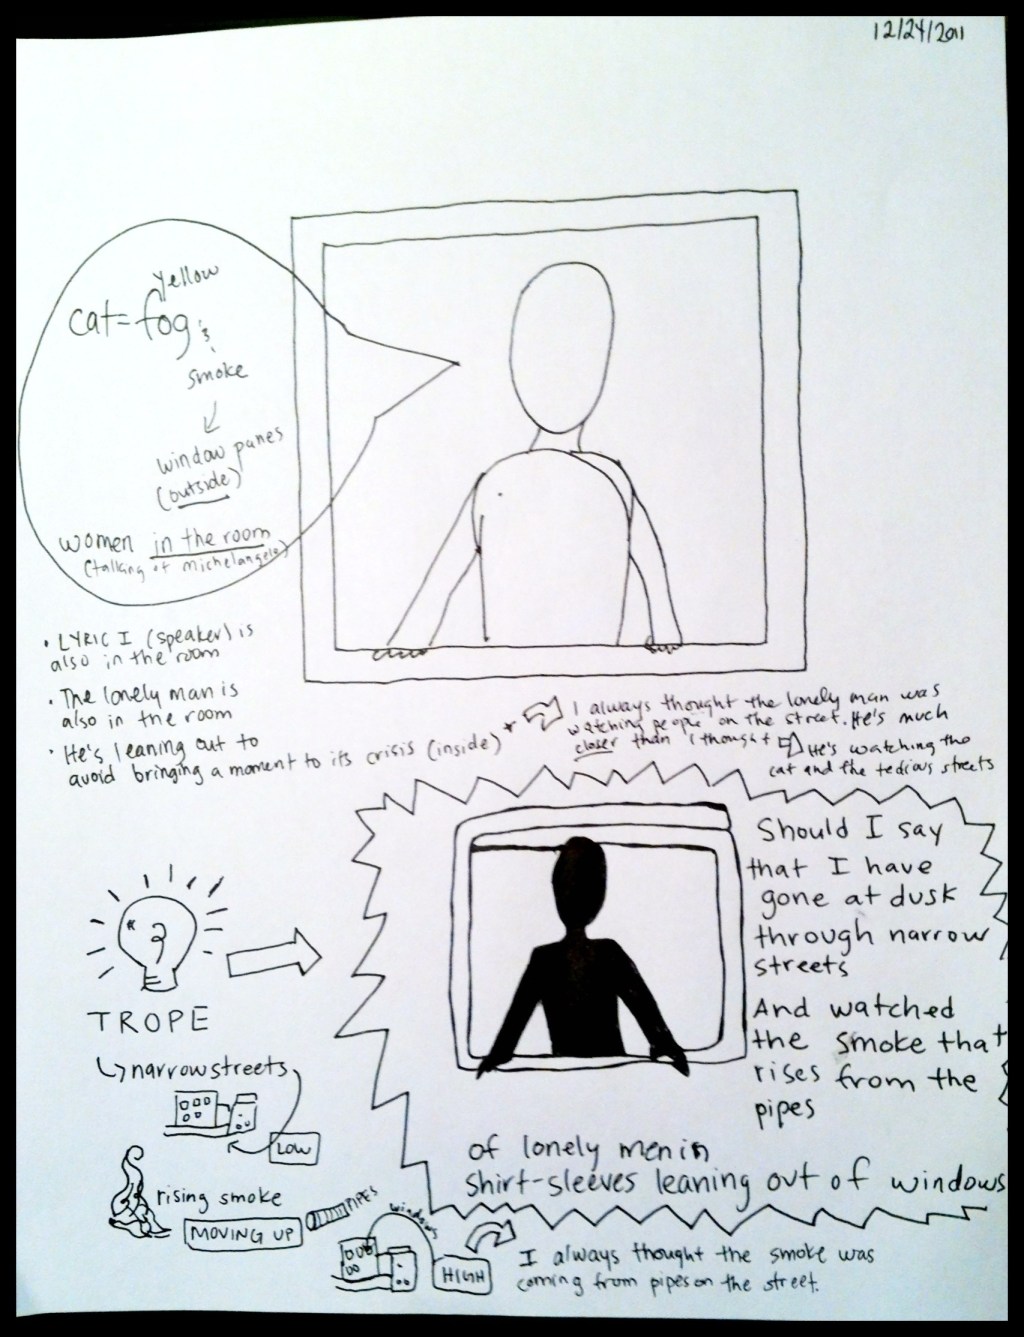 12/24/2011
Yellow
cat=fog
smoke
window panes
(outside)
women in the room
(talking of michelangelo)
• LYRIC I (speaker) is
also in the room
• The lonely man is
also in the room
• He's leaning out to
avoid bringing a moment to its crisis (inside) *
I always thought the lonely man was
watching people on the street. He's much
closer than I thought
He's watching the
cat and the tedious streets
TROPE
narrow streets
LOW
rising smoke
MOVING UP
PIPES
windows
HIGH
I always thought the smoke was
coming from pipes on the street.
Should I say
that I have
gone at dusk
through narrow
streets
And watched
the smoke that
rises from the
pipes
of lonely men in
shirt-sleeves leaning out of windows